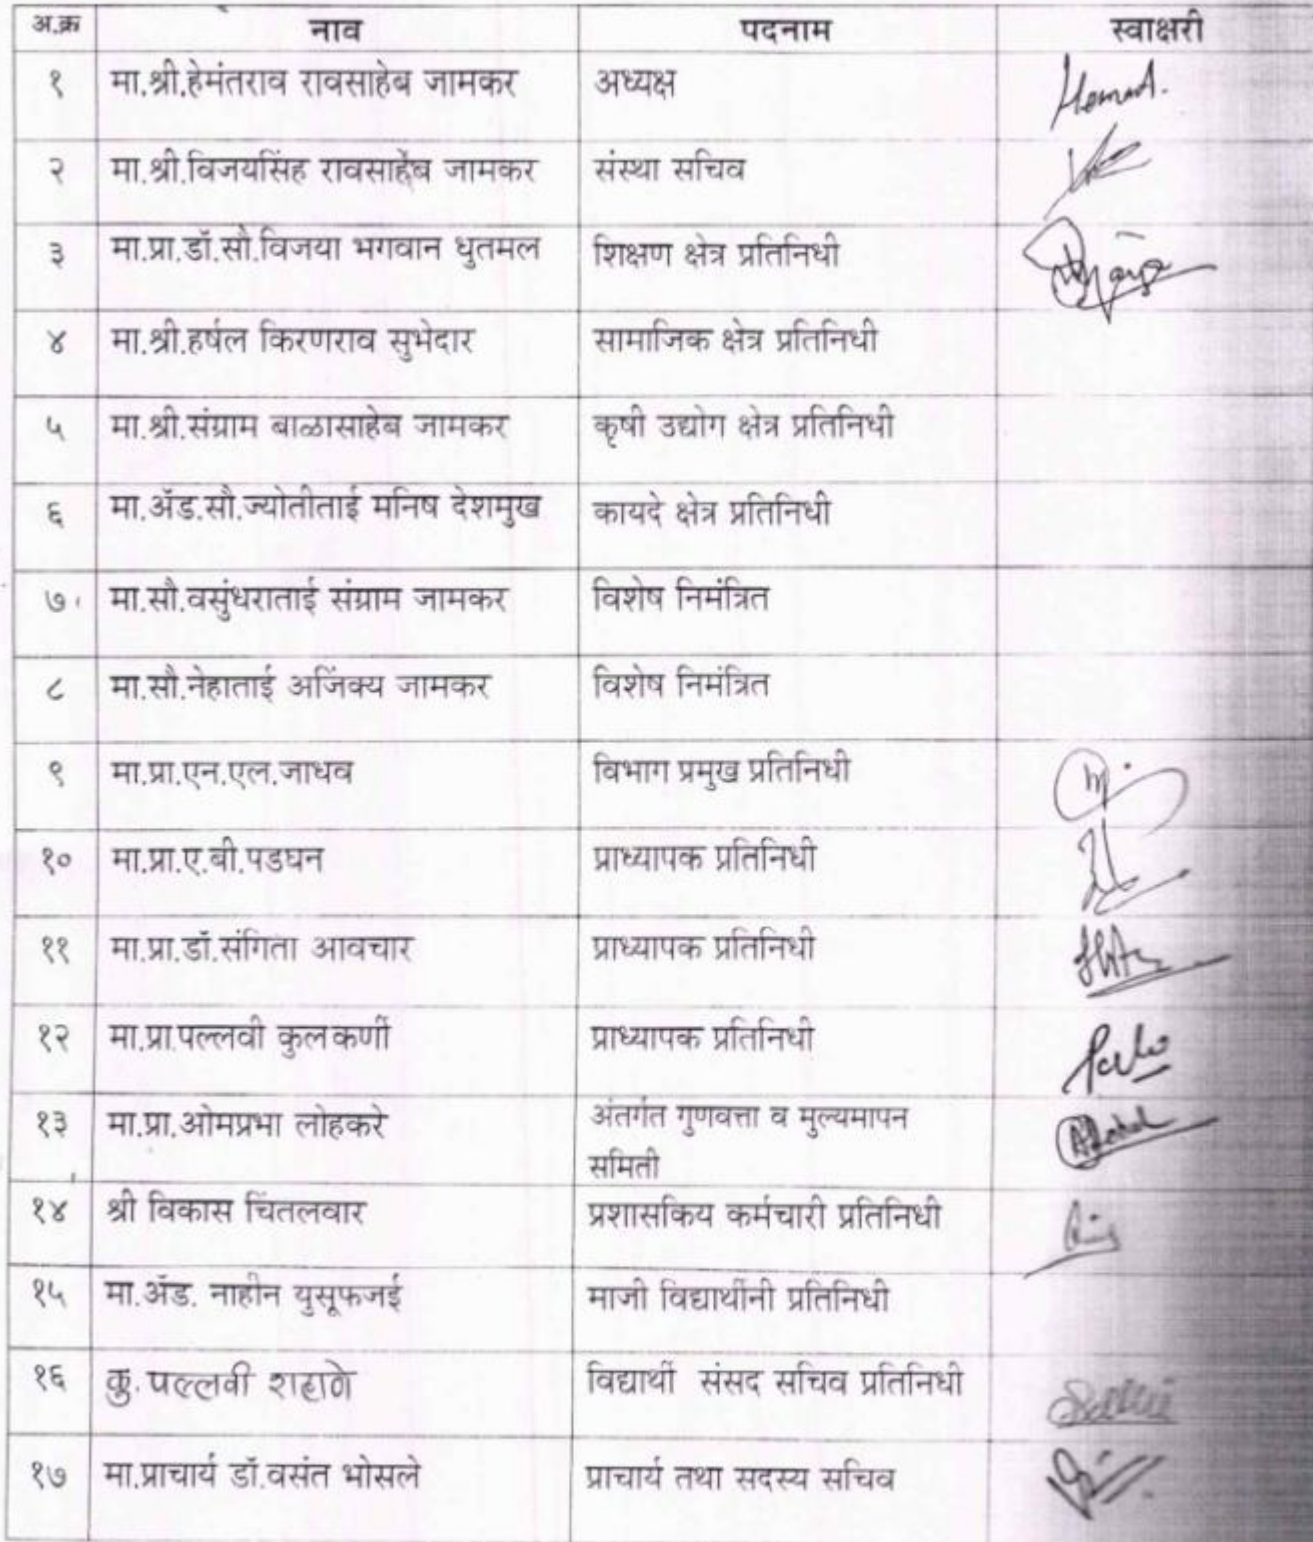 अ.क्र नाव पदनाम स्वाक्षरी
१ मा.श्री.हेमंतराव रावसाहेब जामकर अध्यक्ष
२ मा.श्री.विजयसिंह रावसाहेब जामकर संस्था सचिव
३ मा.प्रा.डॉ.सौ.विजया भगवान धुतमल शिक्षण क्षेत्र प्रतिनिधी
४ मा.श्री.हर्षल किरणराव सुभेदार सामाजिक क्षेत्र प्रतिनिधी
५ मा.श्री.संग्राम बाळासाहेब जामकर कृषी उद्योग क्षेत्र प्रतिनिधी
६ मा.ॲड.सौ.ज्योतीताई मनिष देशमुख कायदे क्षेत्र प्रतिनिधी
७ मा.सौ.वसुंधराताई संग्राम जामकर विशेष निमंत्रित
८ मा.सौ.नेहाताई अजिंक्य जामकर विशेष निमंत्रित
९ मा.प्रा.एन.एल.जाधव विभाग प्रमुख प्रतिनिधी
१० मा.प्रा.ए.बी.पडघन प्राध्यापक प्रतिनिधी
११ मा.प्रा.डॉ.संगिता आवचार प्राध्यापक प्रतिनिधी
१२ मा.प्रा.पल्लवी कुलकर्णी प्राध्यापक प्रतिनिधी
१३ मा.प्रा.ओमप्रभा लोहकरे अंतर्गत गुणवत्ता व मुल्यमापन
समिती
१४ श्री विकास चिंतलवार प्रशासकिय कर्मचारी प्रतिनिधी
१५ मा.ॲड. नाहीन युसूफजई माजी विद्यार्थीनी प्रतिनिधी
१६ कु. पल्लवी शहाणे विद्यार्थी संसद सचिव प्रतिनिधी
१७ मा.प्राचार्य डॉ.वसंत भोसले प्राचार्य तथा सदस्य सचिव